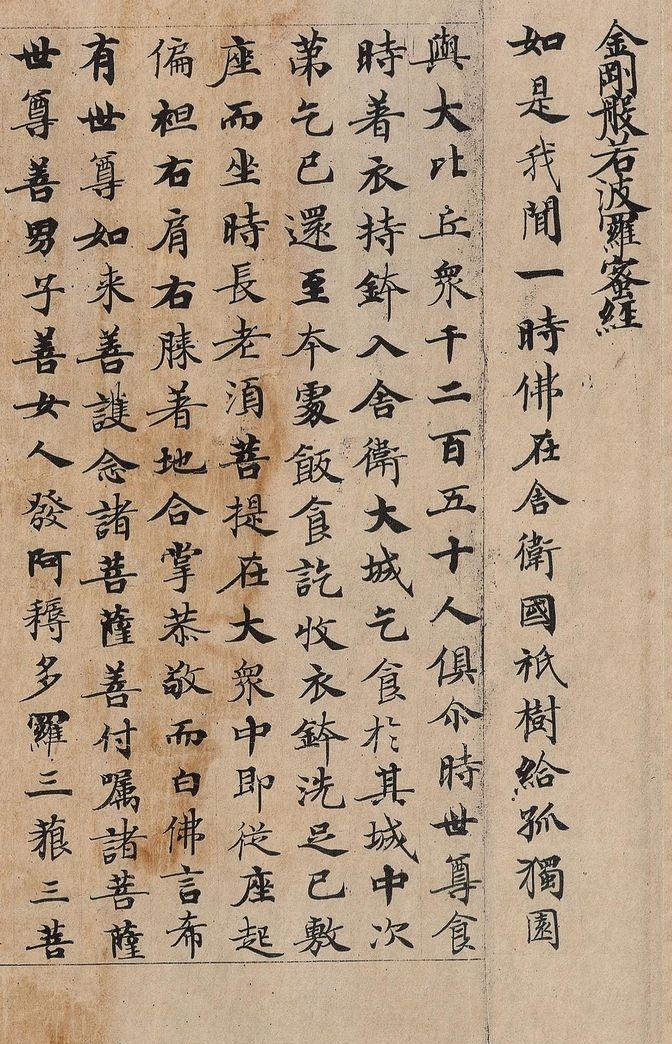 金剛般若波羅蜜經
如是我聞一時佛在舍衛國祇樹給孤獨園
與大比丘眾千二百五十人俱尒時世尊食
時著衣持鉢入舍衛大城乞食於其城中次
苐乞已還至夲處飯食訖收衣鉢洗足已敷
座而坐時長老湏菩提在大眾中即従座起
偏袒右肩右膝著地合掌恭敬而白佛言希
有世尊如来善護念諸菩薩善付嘱諸菩薩
世尊善男子善女人發阿耨多羅三藐三菩